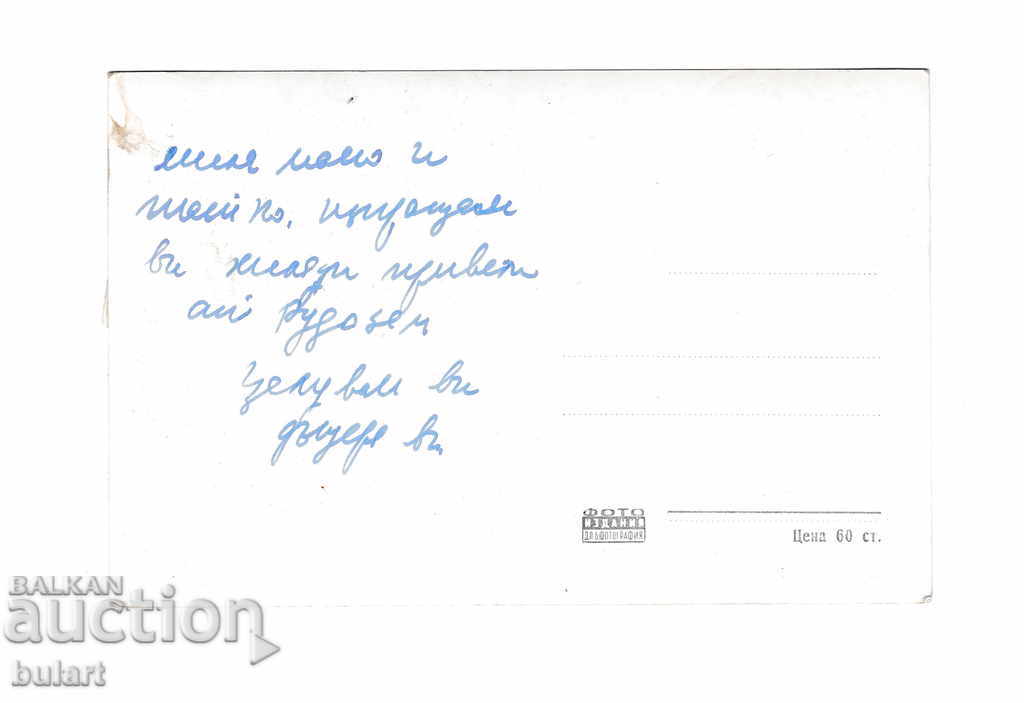 мила мамо и
татко, изпращам
ви хиляди привети
от Рудозем
Целувам ви
дъщеря ви
ФОТО
ИЗДАНИЯ
ДП БФОТОГРАФИЯ
Цена 60 ст.
BALKAN
auction
bulart